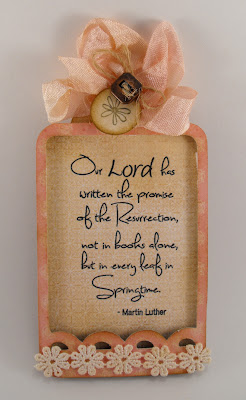 Our Lord has
written the promise
of the Resurrection,
not in books alone,
but in every leaf in
Springtime.
- Martin Luther